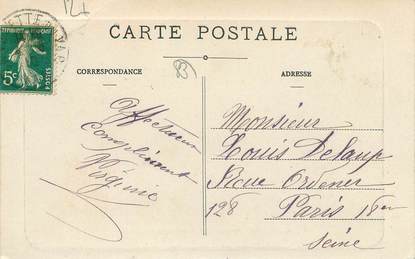 12t
RÉPUBLIQUE FRANÇAISE
5c
POSTES
CARTE POSTALE
CORRESPONDANCE
ADRESSE
Affectueux
Compliment
Virginie
Monsieur
Louis Delaup
Rue Ordener
128 Paris 18em
Seine